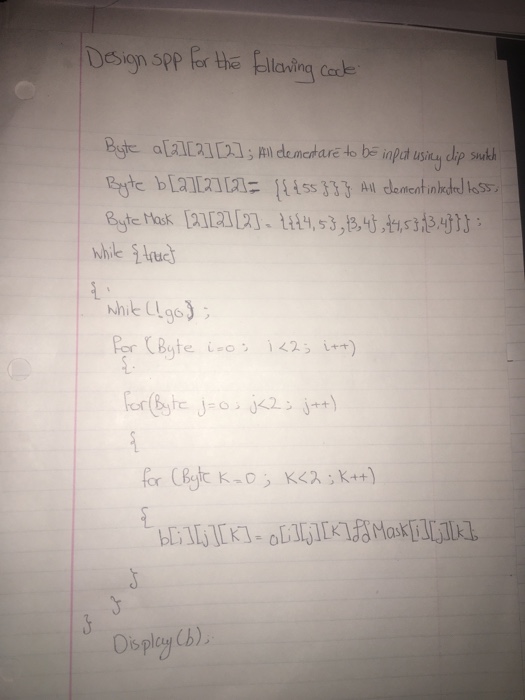 Design spp for the following code
Byte a[2][2][2]; All element are to be input using dip switch
Byte b[2][2][2]= {{{55}}} All element to 55,
Byte Mask [2][2][2]= {{{4,5},{3,4},{4,5},{3,4}}};
While {true}
{
While (!go);
for (Byte i=0; i<2; i++)
{
for(Byte j=0; j<2; j++)
{
for (Byte K=0; K<2; K++)
{
b[i][j][K]= a[i][j][K]&&Mask[i][j][k];
}
}
}
Display(b),